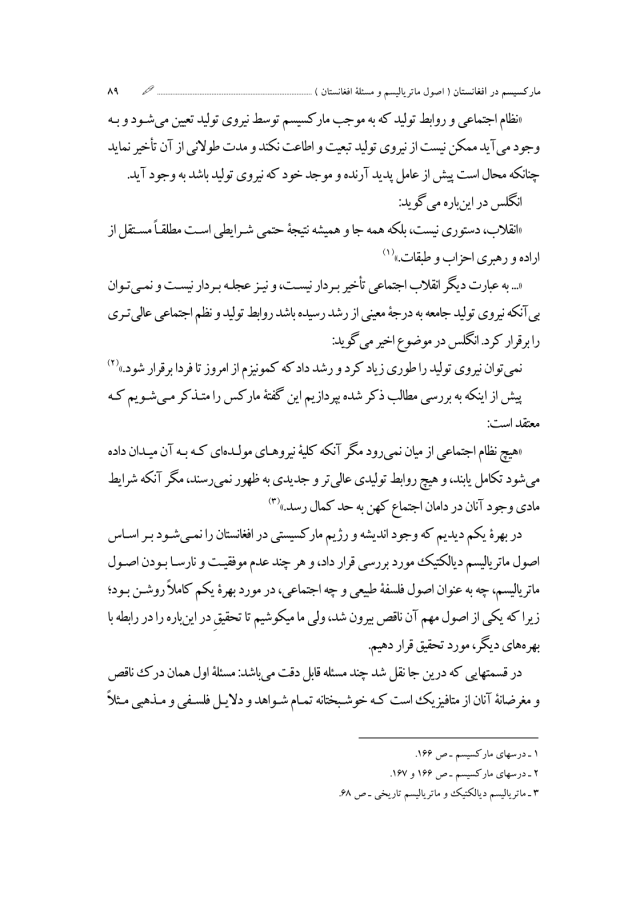 مارکسیسم در افغانستان ( اصول ماتریالیسم و مسئلهٔ افغانستان ) ........ ۸۹
«نظام اجتماعی و روابط تولید که به موجب مارکسیسم توسط نیروی تولید تعیین می‌شود و به
وجود می‌آید ممکن نیست از نیروی تولید تبعیت و اطاعت نکند و مدت طولانی از آن تأخیر نماید
چنانکه محال است پیش از عامل پدید آرنده و موجد خود که نیروی تولید باشد به وجود آید.
انگلس در این‌باره می‌گوید:
«انقلاب، دستوری نیست، بلکه همه جا و همیشه نتیجهٔ حتمی شرایطی است مطلقاً مستقل از
اراده و رهبری احزاب و طبقات.»(۱)
«... به عبارت دیگر انقلاب اجتماعی تأخیر بردار نیست، و نیز عجله بردار نیست و نمی‌توان
بی‌آنکه نیروی تولید جامعه به درجهٔ معینی از رشد رسیده باشد روابط تولید و نظم اجتماعی عالی‌تری
را برقرار کرد. انگلس در موضوع اخیر می‌گوید:
نمی‌توان نیروی تولید را طوری زیاد کرد و رشد داد که کمونیزم از امروز تا فردا برقرار شود.»(۲)
پیش از اینکه به بررسی مطالب ذکر شده بپردازیم این گفتهٔ مارکس را متذکر می‌شویم که
معتقد است:
«هیچ نظام اجتماعی از میان نمی‌رود مگر آنکه کلیهٔ نیروهای مولده‌ای که به آن میدان داده
می‌شود تکامل یابند، و هیچ روابط تولیدی عالی‌تر و جدیدی به ظهور نمی‌رسند، مگر آنکه شرایط
مادی وجود آنان در دامان اجتماع کهن به حد کمال رسد.»(۳)
در بهرهٔ یکم دیدیم که وجود اندیشه و رژیم مارکسیستی در افغانستان را نمی‌شود بر اساس
اصول ماتریالیسم دیالکتیک مورد بررسی قرار داد، و هر چند عدم موفقیت و نارسا بودن اصول
ماتریالیسم، چه به عنوان اصول فلسفهٔ طبیعی و چه اجتماعی، در مورد بهرهٔ یکم کاملاً روشن بود؛
زیرا که یکی از اصول مهم آن ناقص بیرون شد، ولی ما میکوشیم تا تحقیقِ در این‌باره را در رابطه با
بهره‌های دیگر، مورد تحقیق قرار دهیم.
در قسمتهایی که درین جا نقل شد چند مسئله قابل دقت می‌باشد: مسئلهٔ اول همان درک ناقص
و مغرضانهٔ آنان از متافیزیک است که خوشبختانه تمام شواهد و دلایل فلسفی و مذهبی مثلاً
۱ ـ درسهای مارکسیسم ـ ص ۱۶۶.
۲ ـ درسهای مارکسیسم ـ ص ۱۶۶ و ۱۶۷.
۳ ـ ماتریالیسم دیالکتیک و ماتریالیسم تاریخی ـ ص ۶۸.